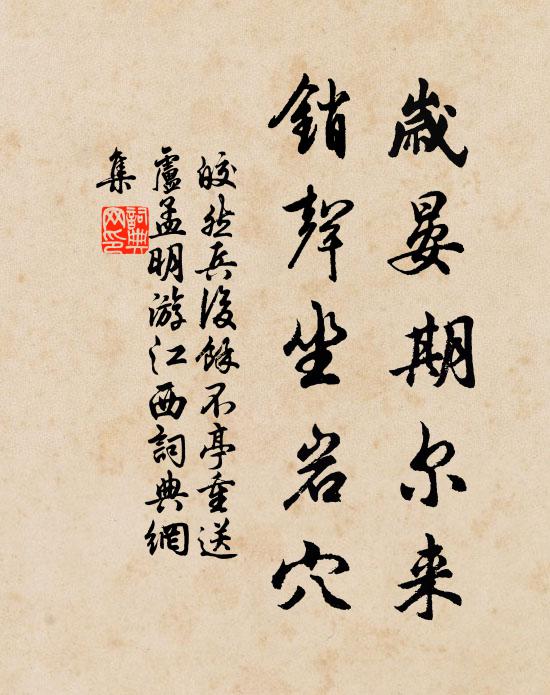 歲晏期尔来
銷聲坐岩穴
皎然兵後餘不亭重送
盧孟明游江西詞典網
集
詞典
网印